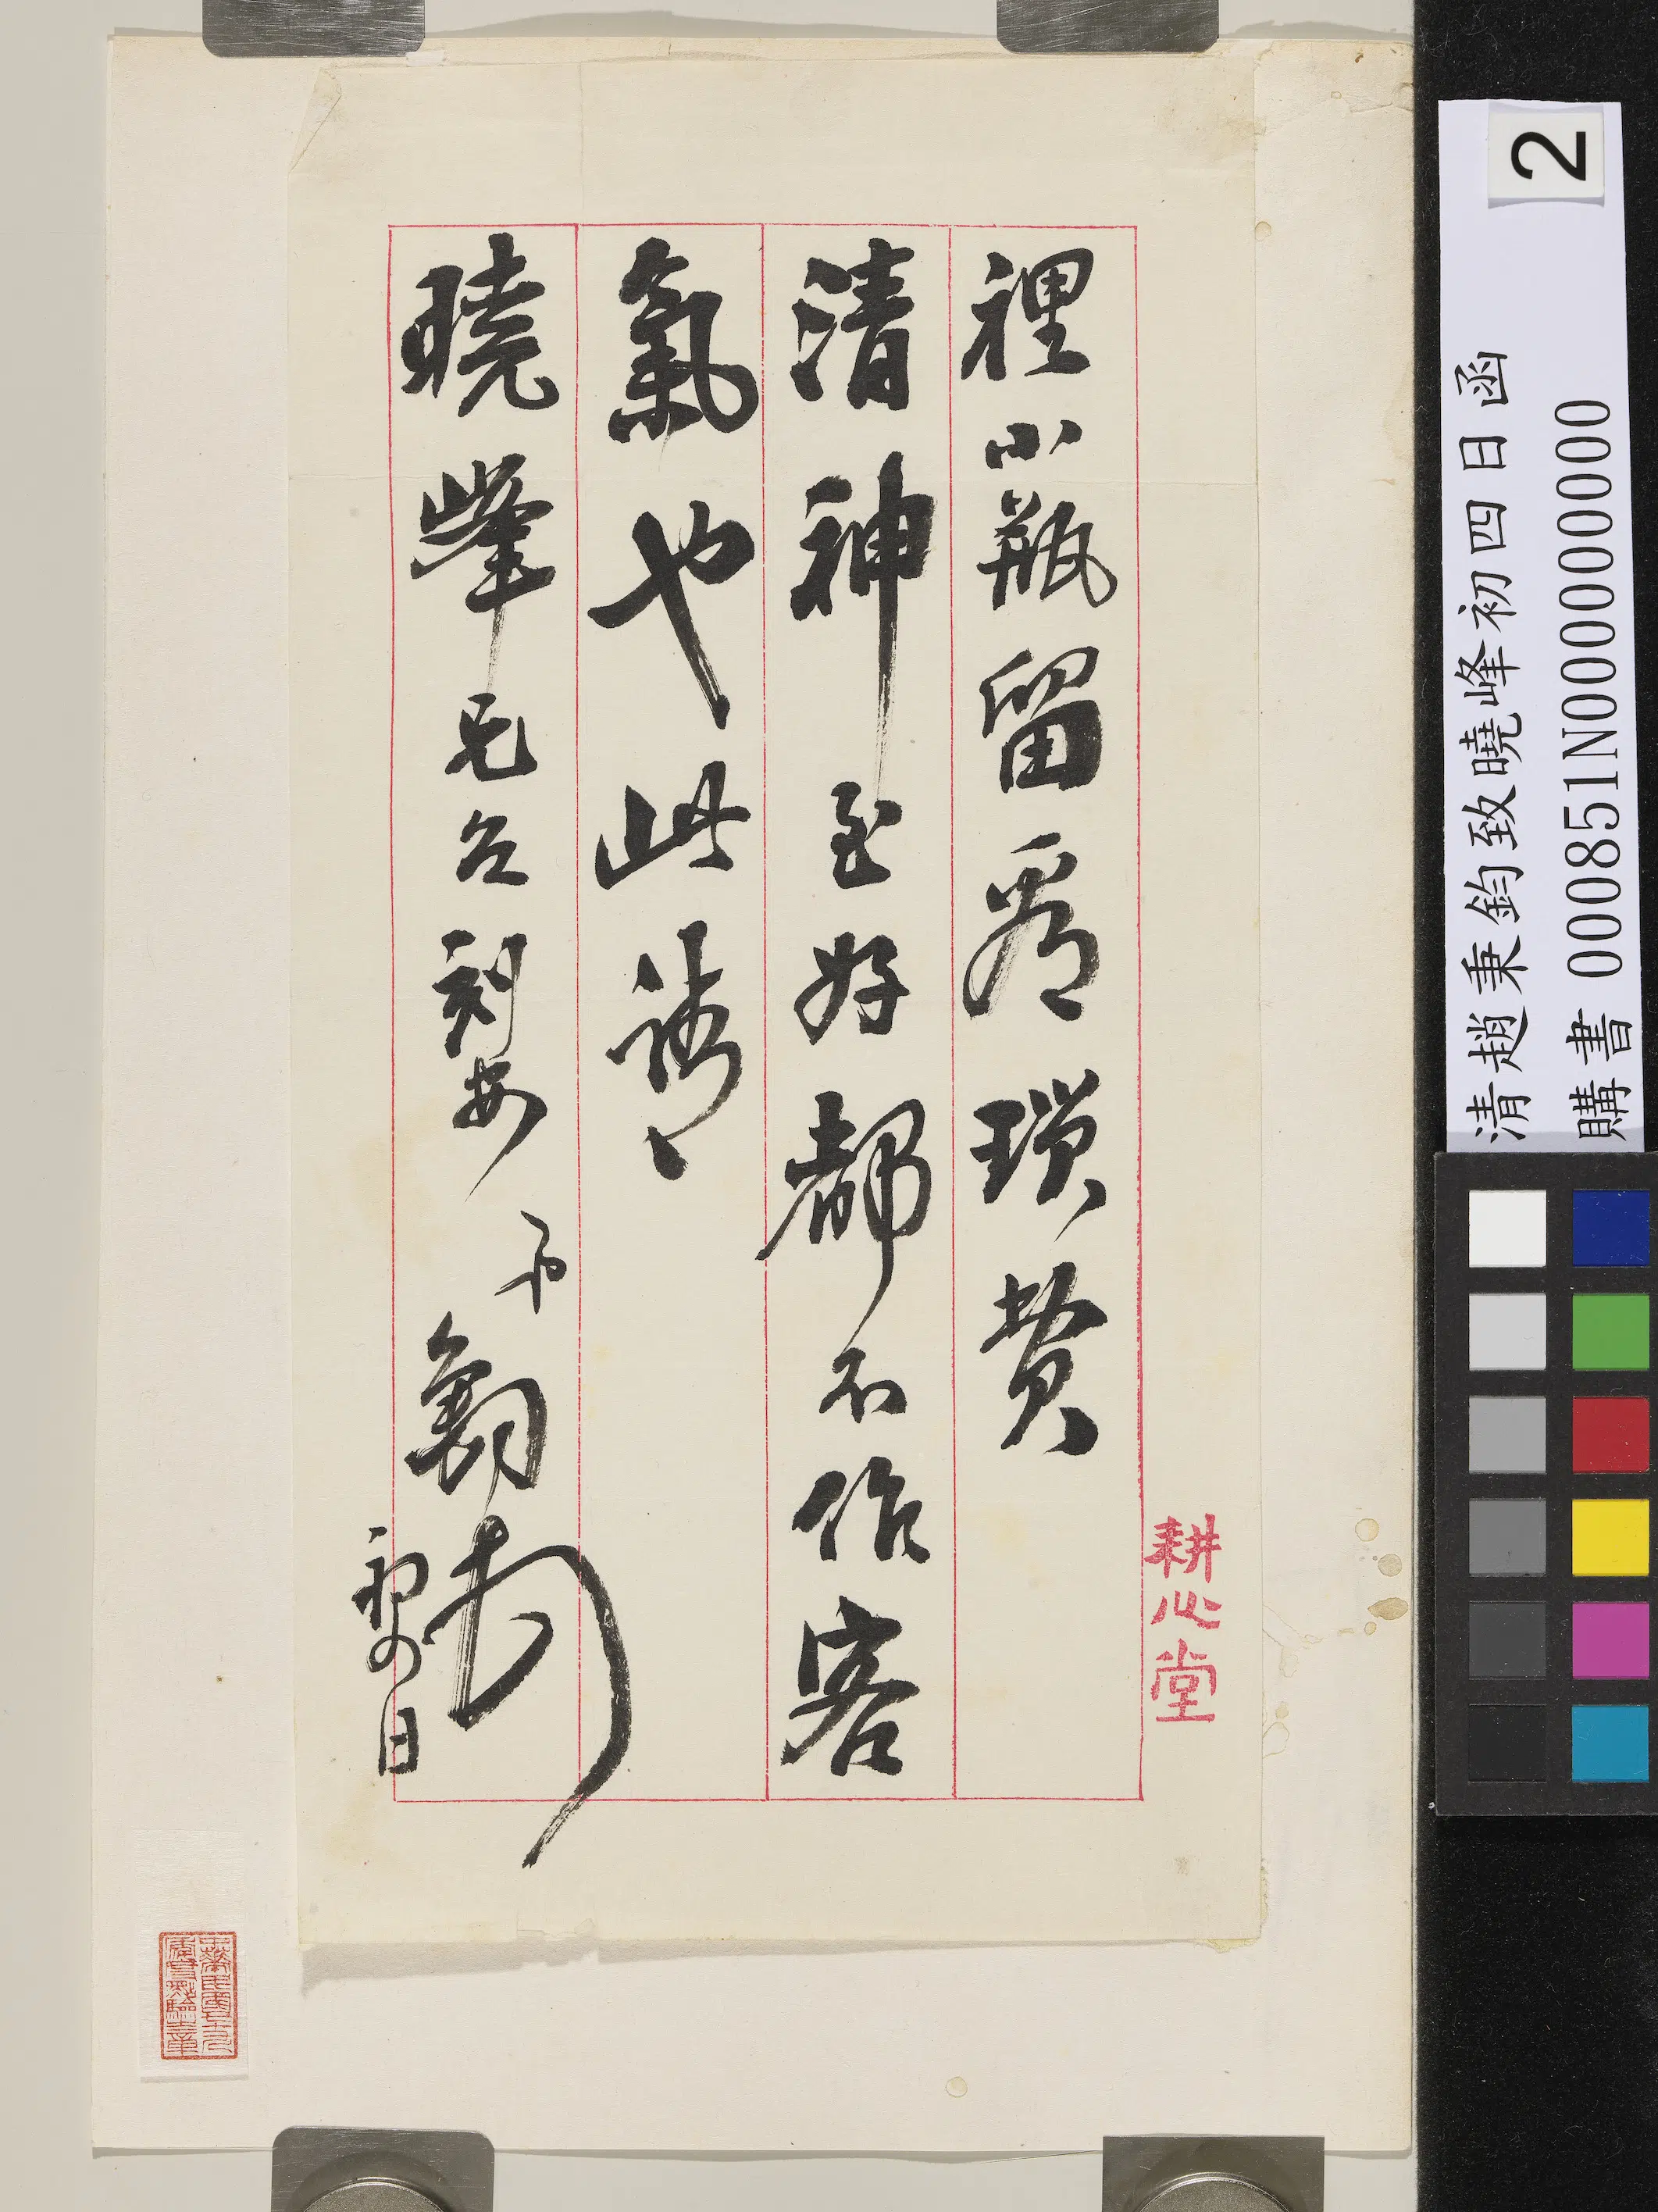 裡小瓶留瑣費
清神至好都不作客
氣也此請
曉峯兄台刻安 弟鈞
初四日
耕心堂
清趙秉鈞致曉峰初四日函
購書 000851N000000000
2